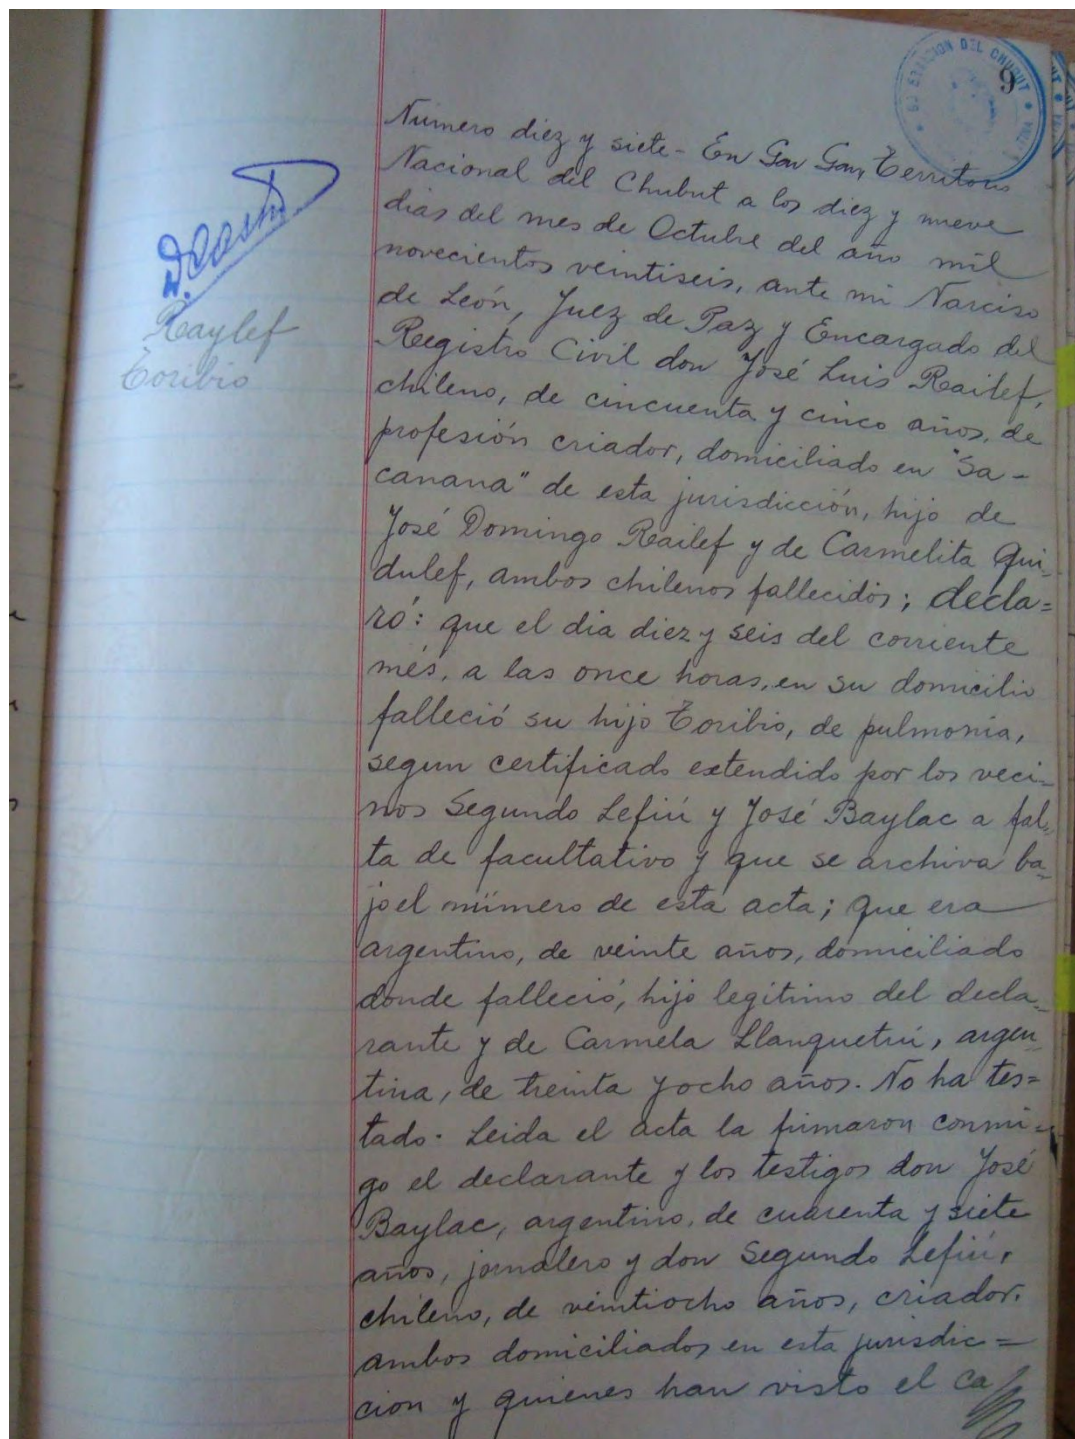 9
Número diez y siete - En Gan Gan, Territorio
Nacional del Chubut a los diez y nueve
dias del mes de Octubre del año mil
novecientos veintiseis, ante mi Narciso
de León, Juez de Paz y Encargado del
Registro Civil don José Luis Railef,
chileno, de cincuenta y cinco años, de
profesión criador, domiciliado en "Sa-
canana" de esta jurisdicción, hijo de
José Domingo Railef y de Carmelita Qui-
dulef, ambos chilenos fallecidos; decla=
ró: que el dia diez y seis del corriente
més, a las once horas, en su domicilio
falleció su hijo Toribio, de pulmonia,
segun certificado extendido por los veci-
nos Segundo Lefiú y José Baylac a fal-
ta de facultativo y que se archiva ba-
jo el número de esta acta; que era
argentino, de veinte años, domiciliado
donde falleció, hijo legitimo del decla-
rante y de Carmela Llanquetrú, argen
tina, de treinta y ocho años. No ha tes=
tado. Leida el acta la firmaron conmi-
go el declarante y los testigos don José
Baylac, argentino, de cuarenta y siete
años, jornalero y don Segundo Lefiú,
chileno, de veintiocho años, criador.
ambos domiciliados en esta jurisdic=
cion y quienes han visto el ca
Raylef
Toribio